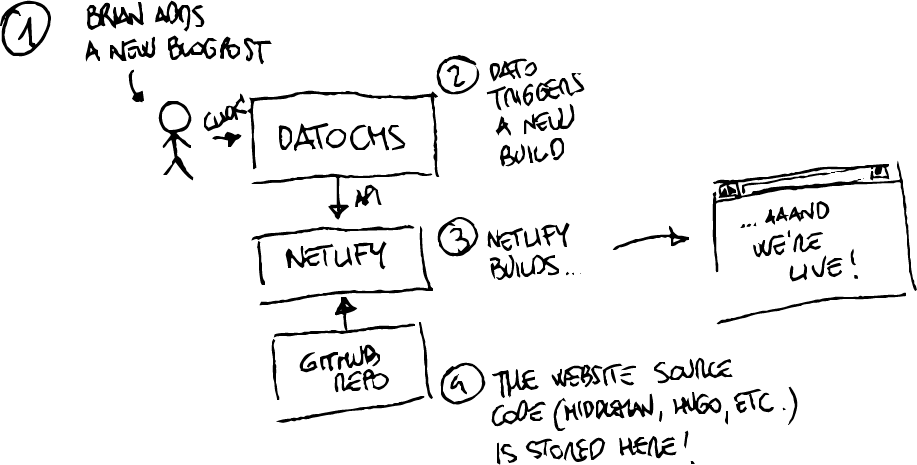 1
BRIAN ADDS
A NEW BLOGPOST
CLICK!
DATOCMS
2
DATO
TRIGGERS
A NEW
BUILD
API
NETLIFY
3
NETLIFY
BUILDS...
...AAAND
WE'RE
LIVE!
GITHUB
REPO
4
THE WEBSITE SOURCE
CODE (MIDDLEMAN, HUGO, ETC.)
IS STORED HERE!